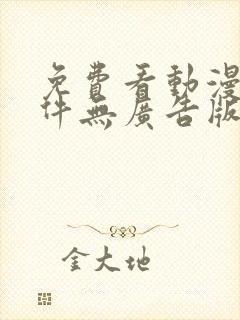 免費看動漫
件無廣告版
金大地